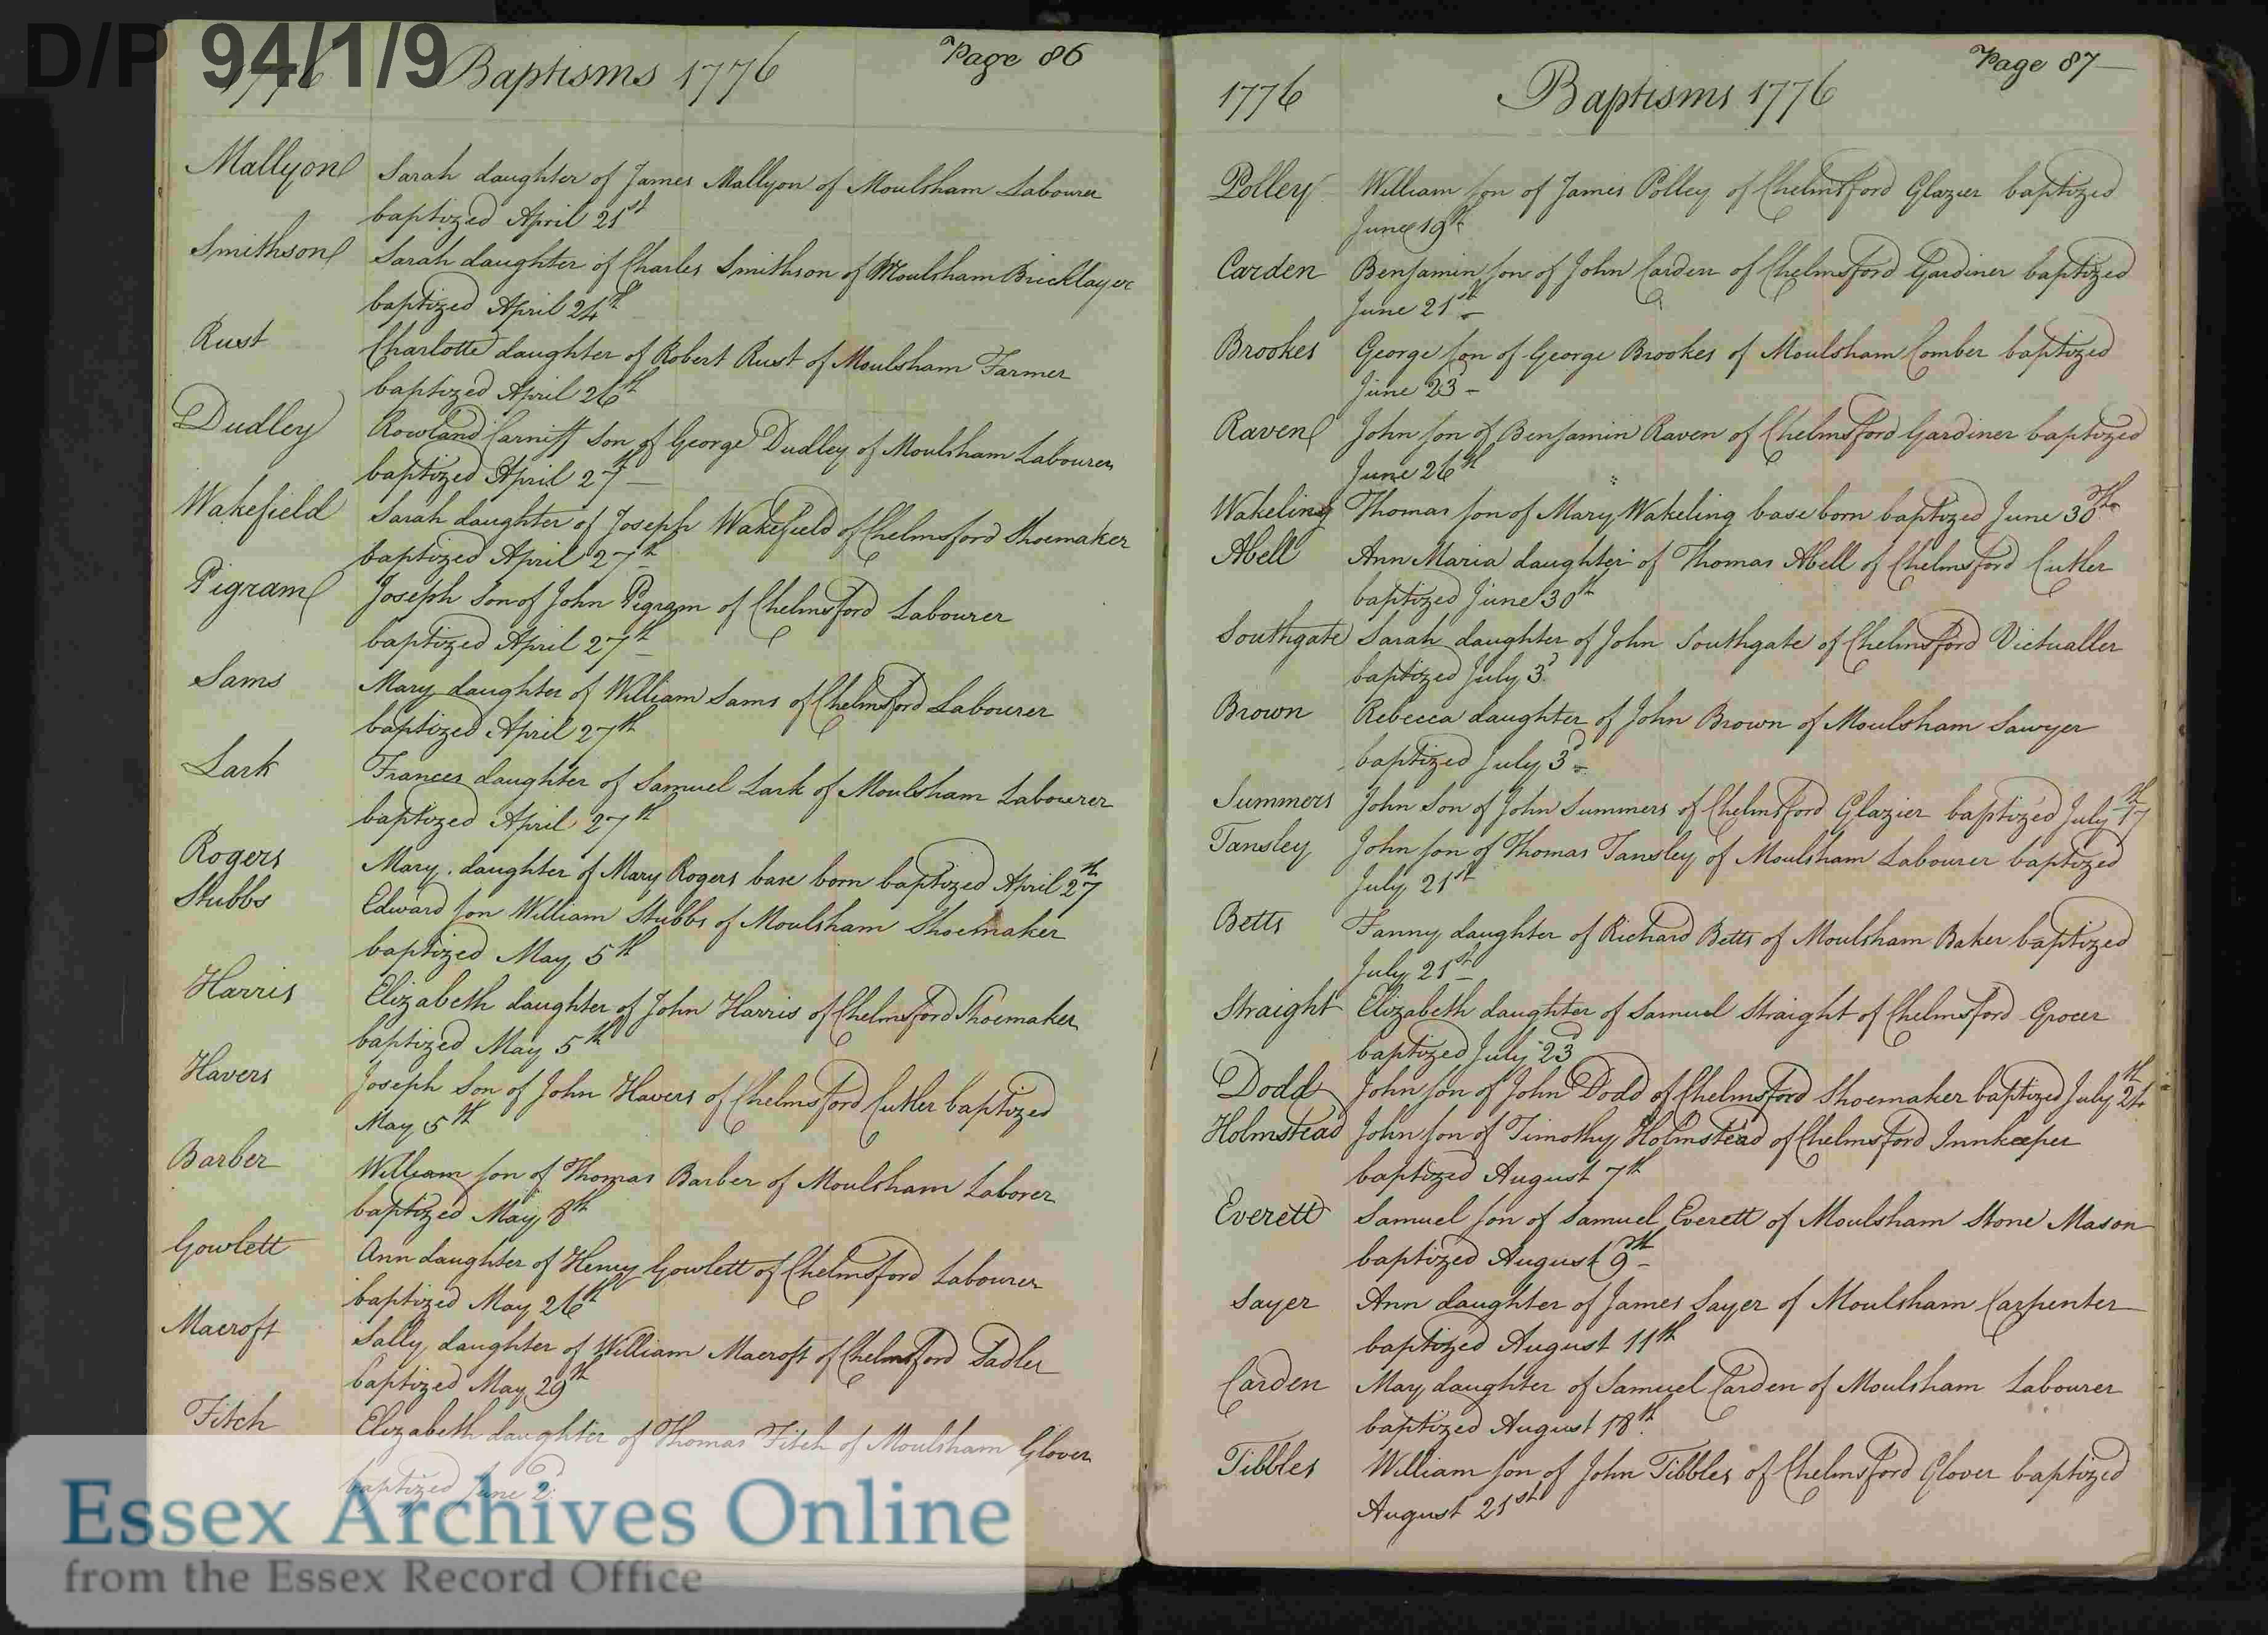 D/P 94/1/9
1776 Baptisms 1776 Page 86
Mallyon Sarah daughter of James Mallyon of Moulsham Labourer
baptized April 21st
Smithson Sarah daughter of Charles Smithson of Moulsham Bricklayer
baptized April 24th
Rust Charlotte daughter of Robert Rust of Moulsham Farmer
baptized April 26th
Dudley Rowland son of George Dudley of Moulsham Labourer
baptized April 27th
Wakefield Sarah daughter of Joseph Wakefield of Chelmsford Shoemaker
baptized April 27th
Pigram Joseph Son of John Pigram of Chelmsford Labourer
baptized April 27th
Sams Mary daughter of William Sams of Chelmsford Labourer
baptized April 27th
Lark Frances daughter of Samuel Lark of Moulsham Labourer
baptized April 27th
Rogers Mary daughter of Mary Rogers base born baptized April 27th
Stubbs Edward son William Stubbs of Moulsham Shoemaker
baptized May 5th
Harris Elizabeth daughter of John Harris of Chelmsford Shoemaker
baptized May 5th
Havers Joseph Son of John Havers of Chelmsford Cutler baptized
May 5th
Barber William son of Thomas Barber of Moulsham Laborer
baptized May 8th
Gowlett Ann daughter of Henry Gowlett of Chelmsford Labourer
baptized May 26th
Macroft Sally daughter of William Macroft of Chelmsford Sadler
baptized May 29th
Fitch Elizabeth daughter of Thomas Fitch of Moulsham Glover
baptized June 2
Essex Archives Online
from the Essex Record Office
Page 87
1776 Baptisms 1776
Polley William son of James Polley of Chelmsford Glazier baptized
June 19th
Carden Benjamin son of John Carden of Chelmsford Gardiner baptized
June 21st
Brookes George son of George Brookes of Moulsham Comber baptized
June 23
Raven John son of Benjamin Raven of Chelmsford Gardiner baptized
June 26th
Wakeling Thomas son of Mary Wakeling base born baptized June 30th
Abell Ann Maria daughter of Thomas Abell of Chelmsford Cutler
baptized June 30th
Southgate Sarah daughter of John Southgate of Chelmsford Victualler
baptized July 3d
Brown Rebecca daughter of John Brown of Moulsham Sawyer
baptized July 3d
Summers John Son of John Summers of Chelmsford Glazier baptized July 17th
Tansley John son of Thomas Tansley of Moulsham Labourer baptized
July 21st
Betts Fanny daughter of Richard Betts of Moulsham Baker baptized
July 21st
Straight Elizabeth daughter of Samuel Straight of Chelmsford Grocer
baptized July 23
Dodd John son of John Dodd of Chelmsford Shoemaker baptized July 24th
Holmstead John son of Timothy Holmstead of Chelmsford Innkeeper
baptized August 7th
Everett Samuel son of Samuel Everett of Moulsham Stone Mason
baptized August 9th
Sayer Ann daughter of James Sayer of Moulsham Carpenter
baptized August 11th
Carden May daughter of Samuel Carden of Moulsham Labourer
baptized August 18th
Tibbles William son of John Tibbles of Chelmsford Glover baptized
August 21st